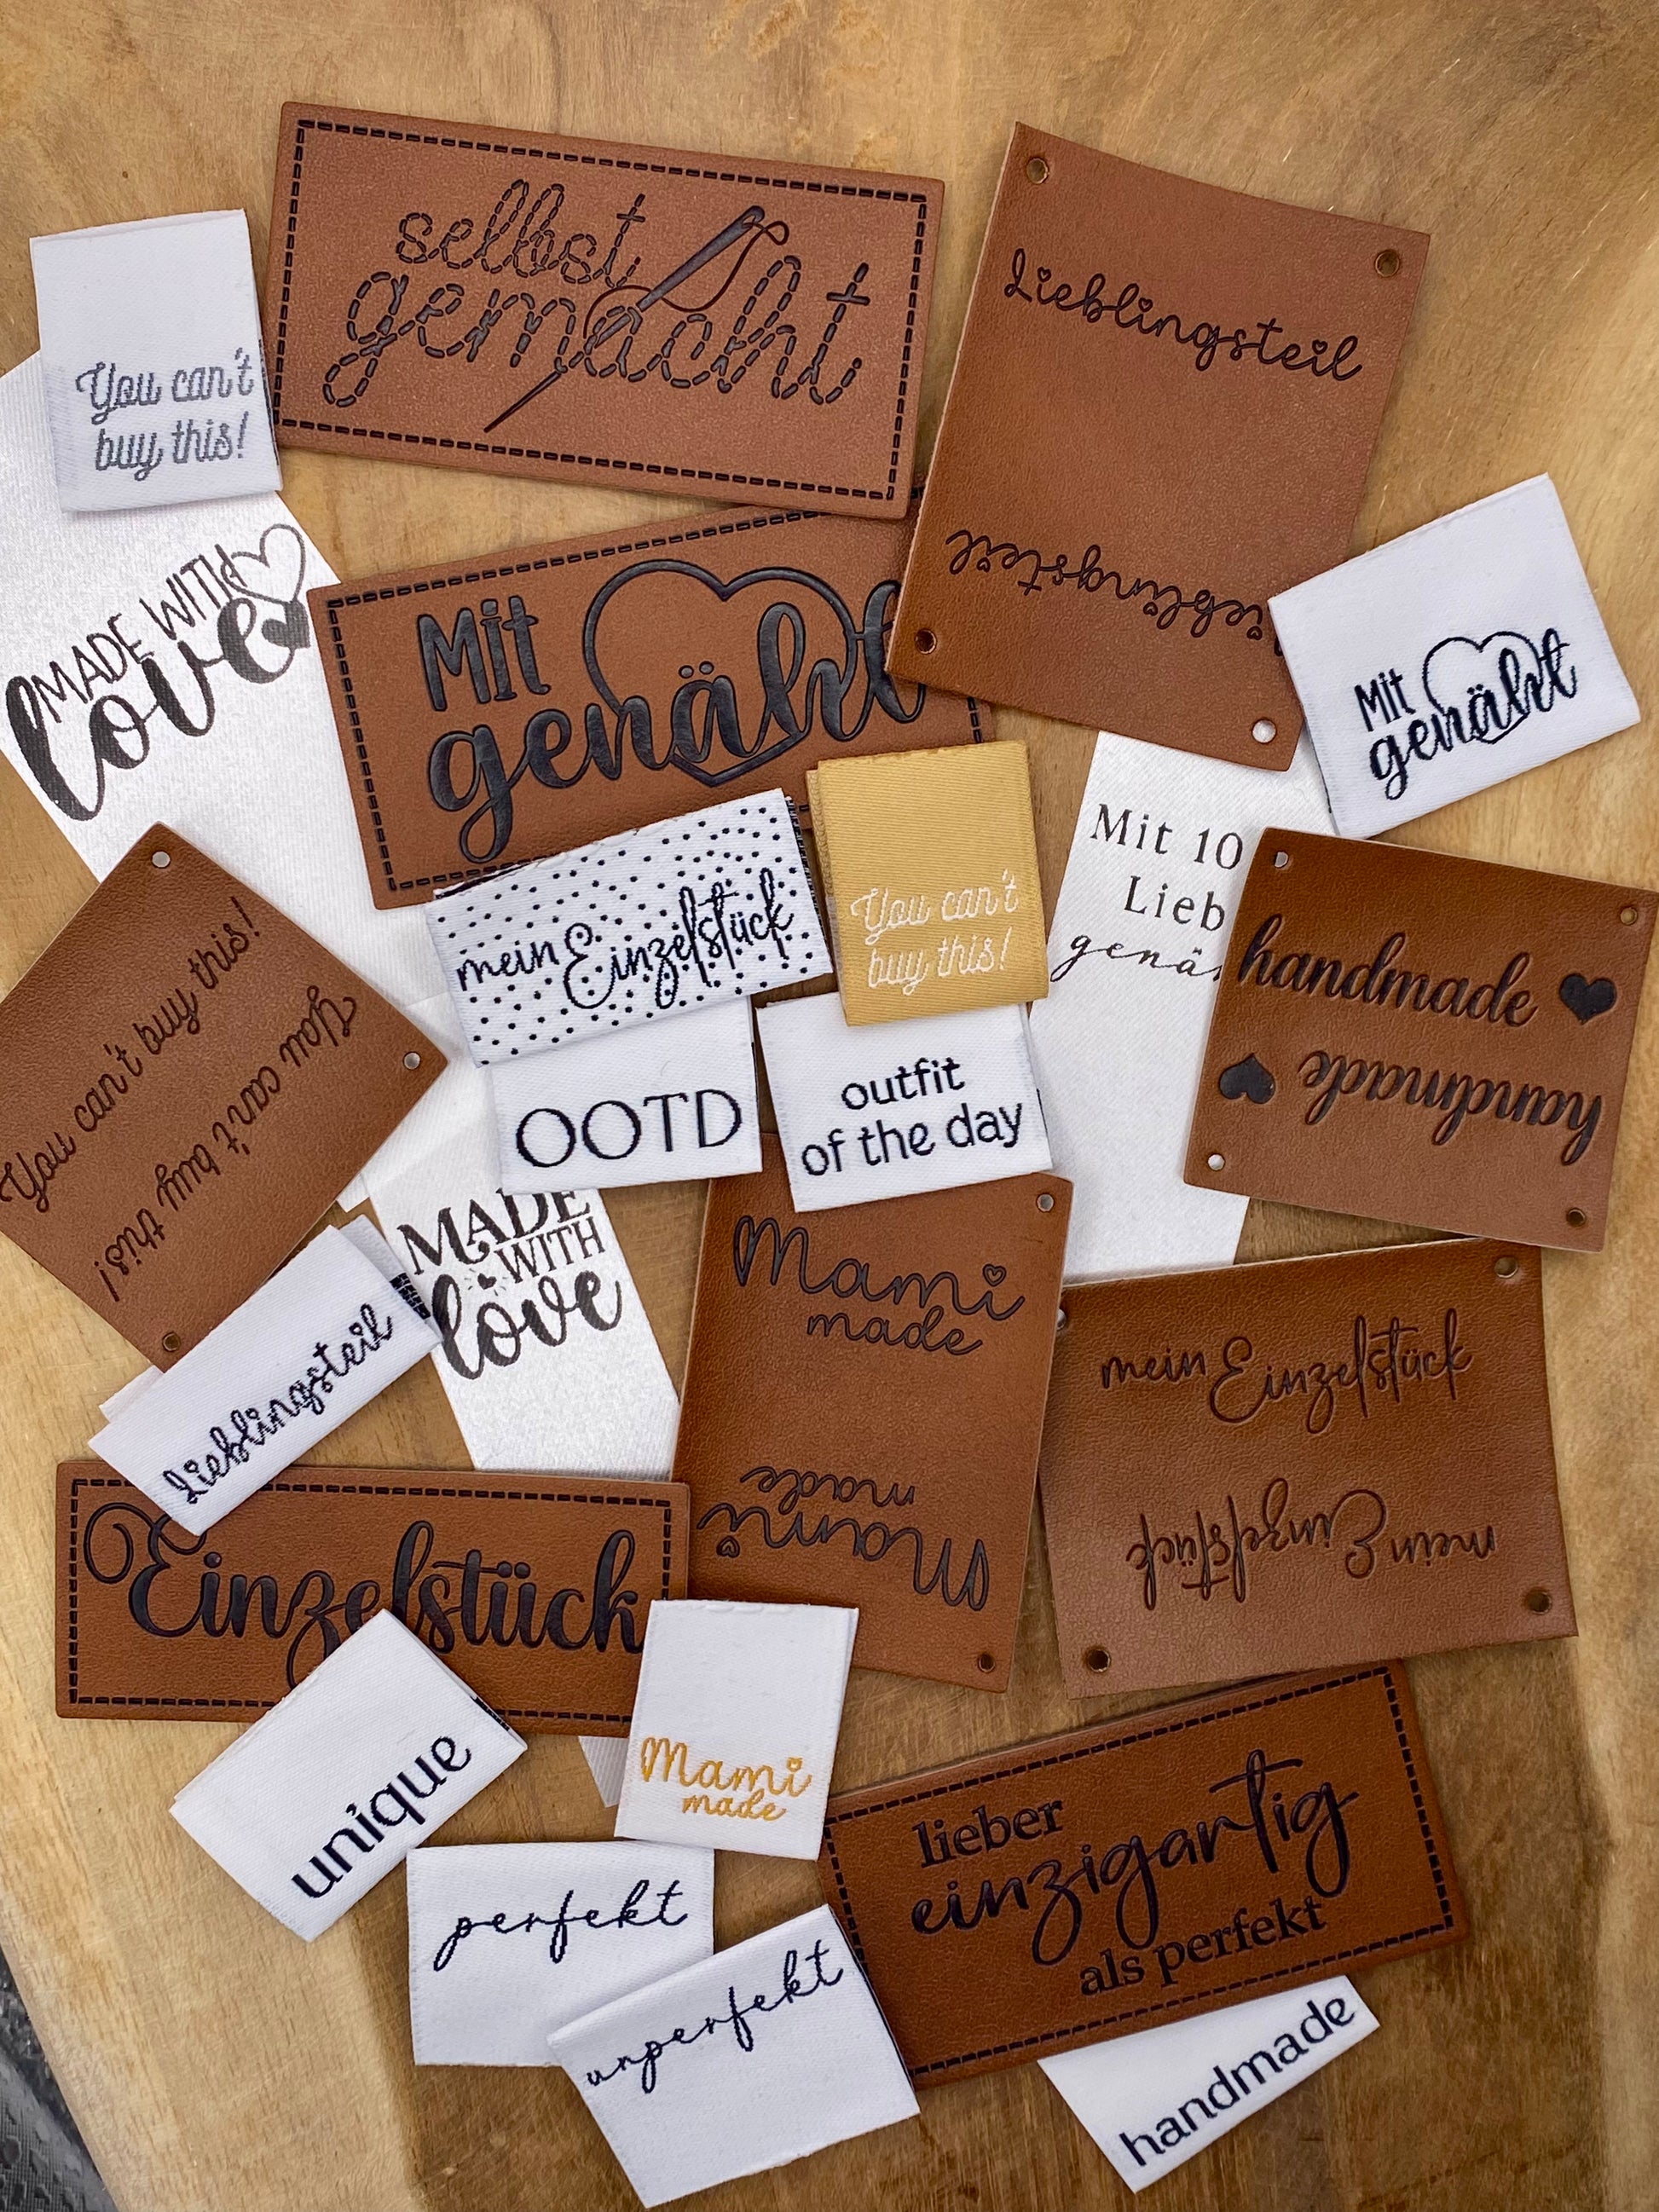 selbst
gemacht
Lieblingsteil
Lieblingsteil
You can't
buy this!
MADE WITH
love
Mit
genäht
Mit
genäht
Mit 10
Lieb
genä
You can't
buy this!
mein Einzelstück
handmade
handmade
You can't buy this!
You can't buy this!
OOTD
outfit
of the day
MADE
WITH
love
Mami
made
Mami
made
mein Einzelstück
mein Einzelstück
Lieblingsteil
Einzelstück
unique
Mami
made
lieber
einzigartig
als perfekt
perfekt
unperfekt
handmade